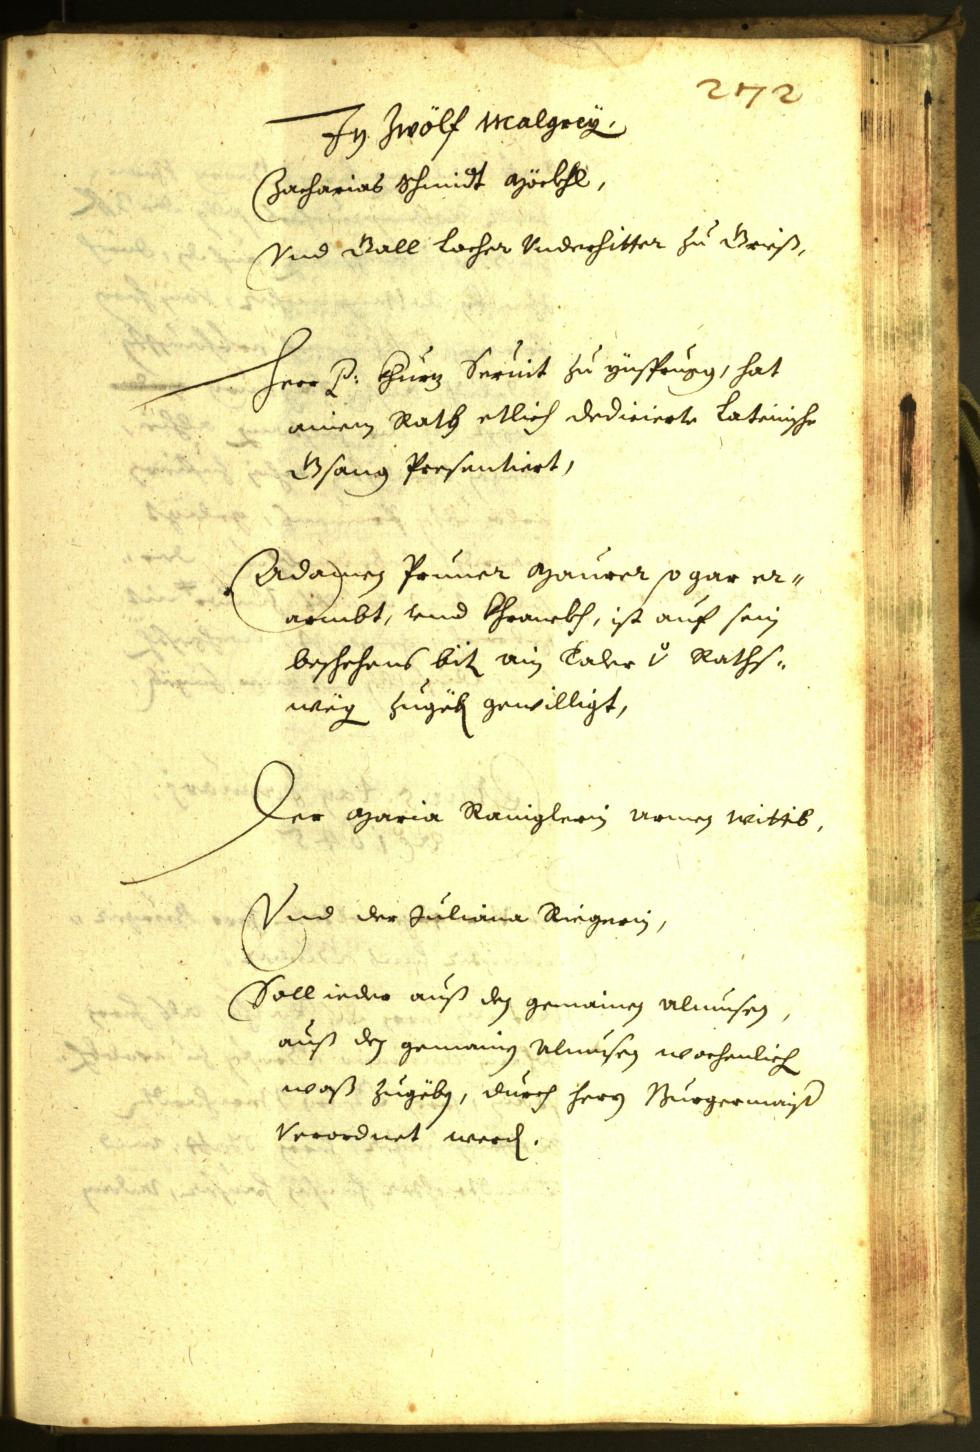 272
In Zwölf Malgrey.
Zacharias Schmidt Möckhl,
Vnd Gall Locher Vnderhitter zu Grieß,
Herr P: Khurz Seruit zu ÿnsprugg, hat
ainem Rath etlich dedicierte Lateinische
Gsang Presentiert,
Adamen Pruner Maurer so gar er-
armbt, vnd Khranckh, ist auf sein
beschehens bit ain Taler Raths-
wëg zugëb gewilligt,
Der Maria Raniglerin armen Wittib,
Vnd der Juliana Riegerin,
Soll ieder auß den gemainen Almusen,
auß den gemainen Almusen wochenlich
waß zugëben, durch herrn Burgermaister
Verordnet werd.